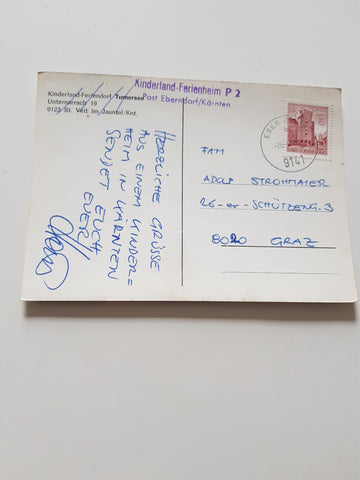 Kinderland-Feriendorf/Turnersee
Unternarrach 19
9123 St. Veit im Jauntal/Knt.
Kinderland-Ferienheim P 2
Post Eberndorf/Kärnten
HERZLICHE GRÜSSE
AUS EINEM KINDER=
HEIM IN KÄRNTEN
SENDET EUCH
EUER
9141
FAM
ADOLF STROHMAIER
26-er-SCHÜTZENG. 3
8020 GRAZ